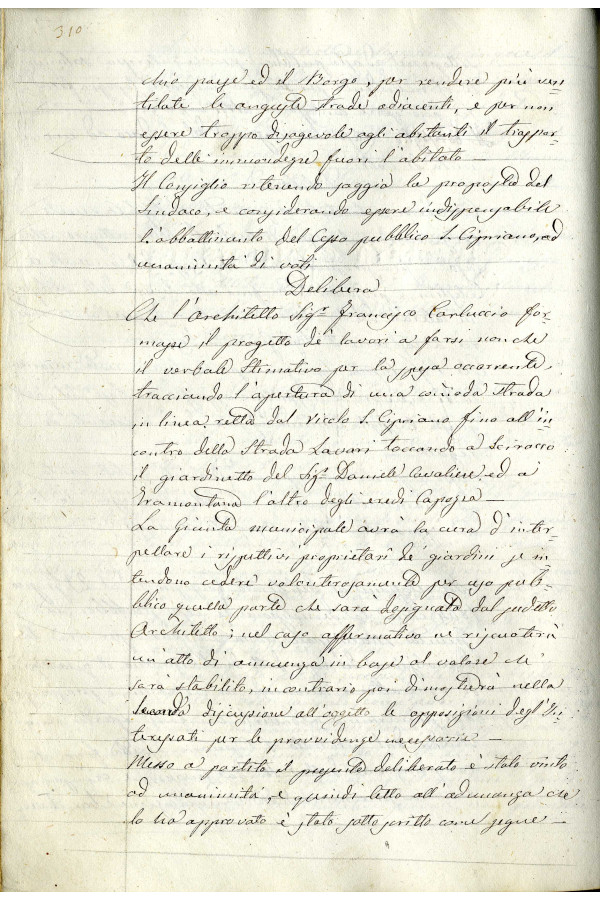 310
chio paese ed il Borgo, per rendere più ven-
tilate le anguste strade adiacenti, e per non
essere troppo disagevole agli abitanti il traspor-
to delle immondezze fuori l'abitato —
Il Consiglio ritenendo saggia la proposta del
Sindaco, e considerando essere indispensabile
l'abbattimento del Cesso pubblico S. Cipriano, ad
unanimità di voti
Delibera
Che l'Architetto Sigr. Francesco Carluccio for-
masse il progetto de' lavori a farsi non che
il verbale stimativo per la spesa occorrente,
tracciando l'apertura di una comoda strada
in linea retta dal Vicolo S. Cipriano fino all'in-
contro della Strada Lavari toccando a Scirocco
il giardinetto del Sigr. Daniele Cavaliere, ed a
Tramontana l'altro degli eredi Capozza —
La Giunta municipale avrà la cura d'inter-
pellare i rispettivi proprietari de' giardini se in-
tendono cedere volenterosamente per uso pub-
blico quella parte che sarà designata dal sudetto
Architetto; nel caso affermativo ne riscuoterà
un'atto di annuenza in base al valore che
sarà stabilito, in contrario poi dimostrerà nella
seconda discussione all'oggetto le opposizioni degl'In-
teressati per le provvidenze necessarie —
Messo a partito il presente deliberato è stato vinto
ad unanimità, e quindi letto all'adunanza che
lo ha approvato è stato sottoscritto come segue —